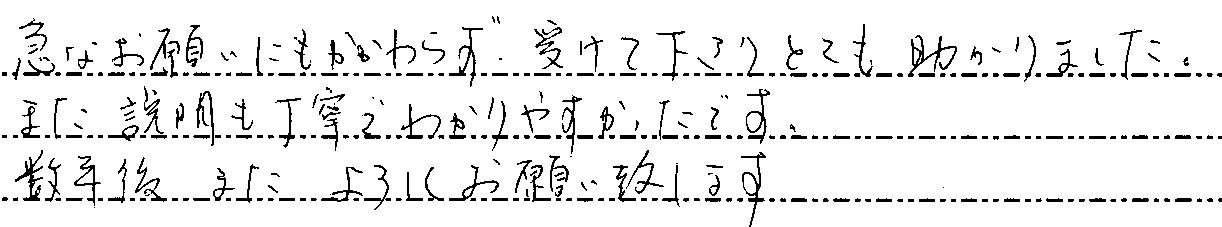 急なお願いにもかかわらず、受けて下さりとても助かりました。
また説明も丁寧でわかりやすかったです。
数年後 また よろしくお願い致します